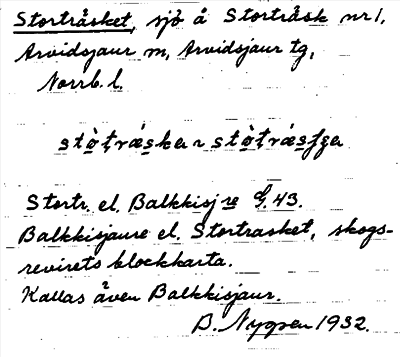 Storträsket, sjö å Storträsk nr 1,
Arvidsjaur m, Arvidsjaur tg,
Norrb. l.
Stortr. el. Balkkisjre G. 43.
Balkkisjaure el. Stortrasket, skogs-
revirets blockkarta.
Kallas även Balkkisjaur.
B. Nygren 1932.